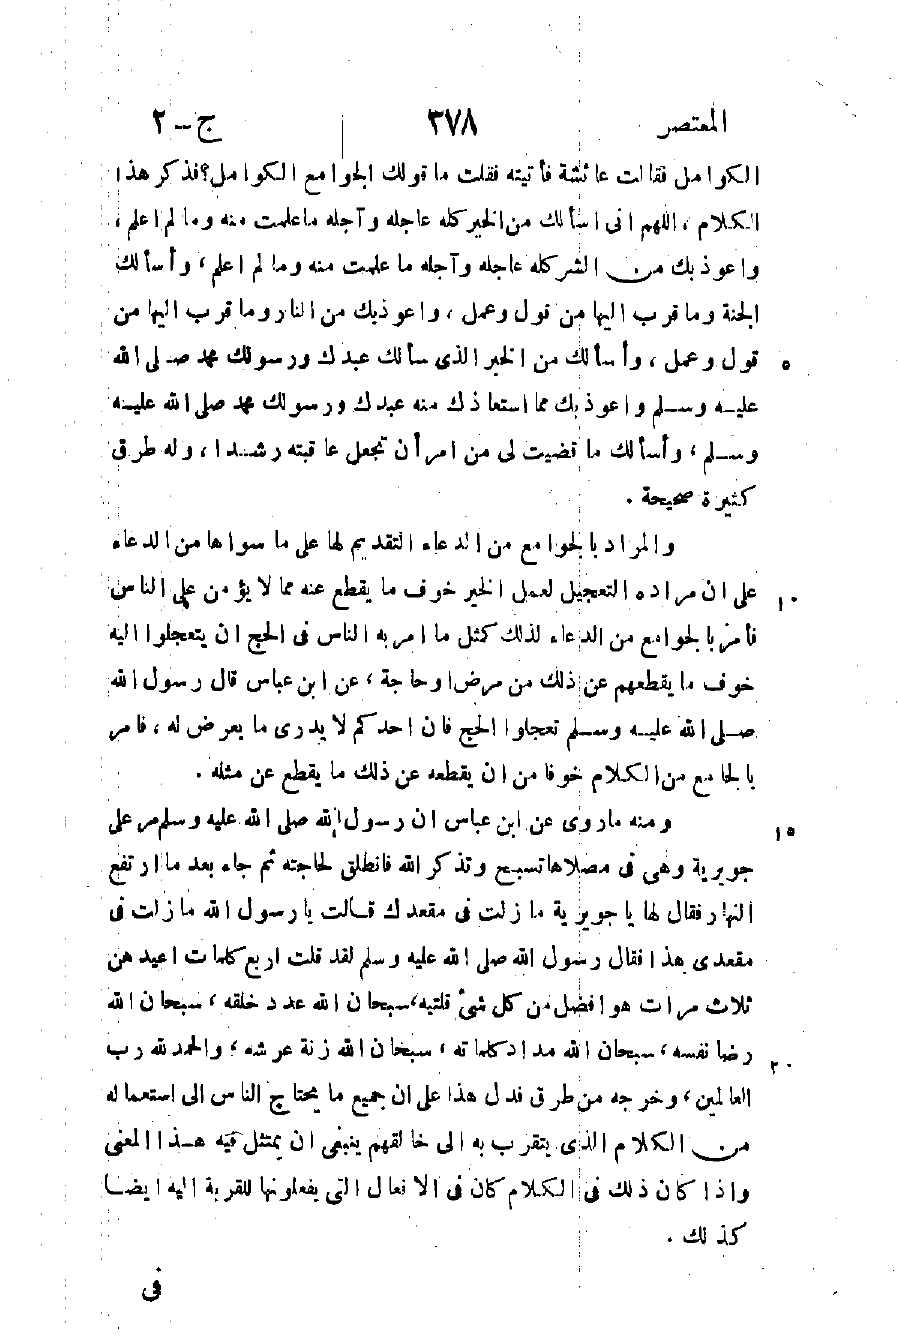 المعتصر ٣٧٨ ج - ٢
الكوامل فقالت عائشة فأتيته فقلت ما قولك الجوامع الكوامل؟ فذكر هذا
الكلام ، اللهم انى اسألك من الخير كله عاجله وآجله ما علمت منه وما لم اعلم ،
واعوذ بك من الشر كله عاجله وآجله ما علمت منه وما لم اعلم ، وأسألك
الجنة وما قرب اليها من قول وعمل ، واعوذ بك من النار وما قرب اليها من
قول وعمل ، وأسألك من الخير الذى سألك عبدك ورسولك محمد صلى الله ٥
عليه وسلم واعوذ بك مما استعاذك منه عبدك ورسولك محمد صلى الله عليه
وسلم ، وأسألك ما قضيت لى من امر أن تجعل عاقبته رشدا ، وله طرق
كثيرة صحيحة .
والمراد بالجوامع من الدعاء التقديم لها على ما سواها من الدعاء
على ان مراده التعجيل لعمل الخير خوف ما يقطع عنه مما لا يؤمن على الناس ١٠
فأمر بالجوامع من الدعاء لذلك كمثل ما امر به الناس فى الحج ان يتعجلوا اليه
خوف ما يقطعهم عن ذلك من مرض او حاجة ، عن ابن عباس قال رسول الله
صلى الله عليه وسلم تعجلوا الحج فان احدكم لا يدرى ما يعرض له ، فامر
بالجامع من الكلام خوفا من ان يقطعه عن ذلك ما يقطع عن مثله .
ومنه ما روى عن ابن عباس ان رسول الله صلى الله عليه وسلم مر على ١٥
جويرية وهى فى مصلاها تسبح وتذكر الله فانطلق لحاجته ثم جاء بعد ما ارتفع
النهار فقال لها يا جويرية ما زلت فى مقعدك قالت يا رسول الله ما زلت فى
مقعدى هذا فقال رسول الله صلى الله عليه وسلم لقد قلت اربع كلمات اعيدهن
ثلاث مرات هو افضل من كل شئ قلتيه، سبحان الله عدد خلقه ، سبحان الله
رضا نفسه ، سبحان الله مداد كلماته ، سبحان الله زنة عرشه ، والحمد لله رب ٢٠
العالمين ، وخرجه من طرق فدل هذا على ان جميع ما يحتاج الناس الى استعماله
من الكلام الذى يتقرب به الى خالقهم ينبغى ان يمتثل فيه هذا المعنى
واذا كان ذلك فى الكلام كان فى الافعال التى يفعلونها للقربة اليه ايضا
كذلك .
فى